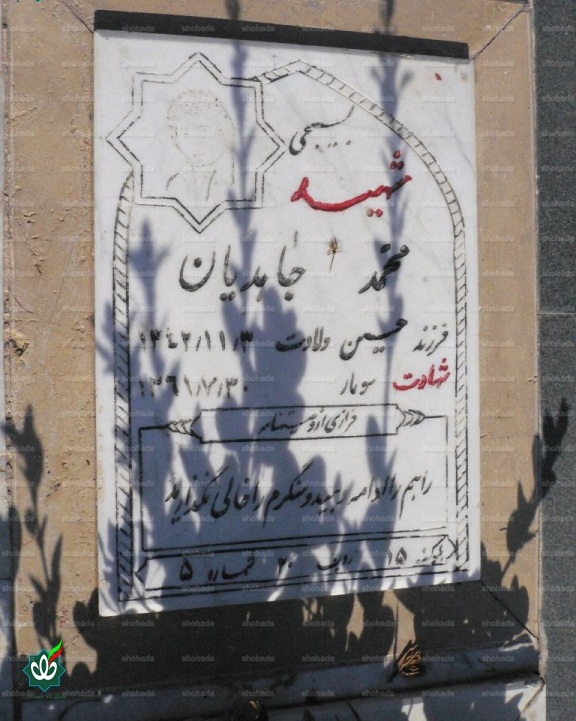 بسیجی
شهید
محمد جاهدیان
فرزند حسین ولادت ۱۳۴۲/۱۱/۳
شهادت سومار ۱۳۶۱/۷/۳۰
فرازی از وصیتنامه
راهم را ادامه دهید و سنگرم را خالی نگذارید
بلوک ۱۵ ردیف ۲۰ شماره ۵
shohada